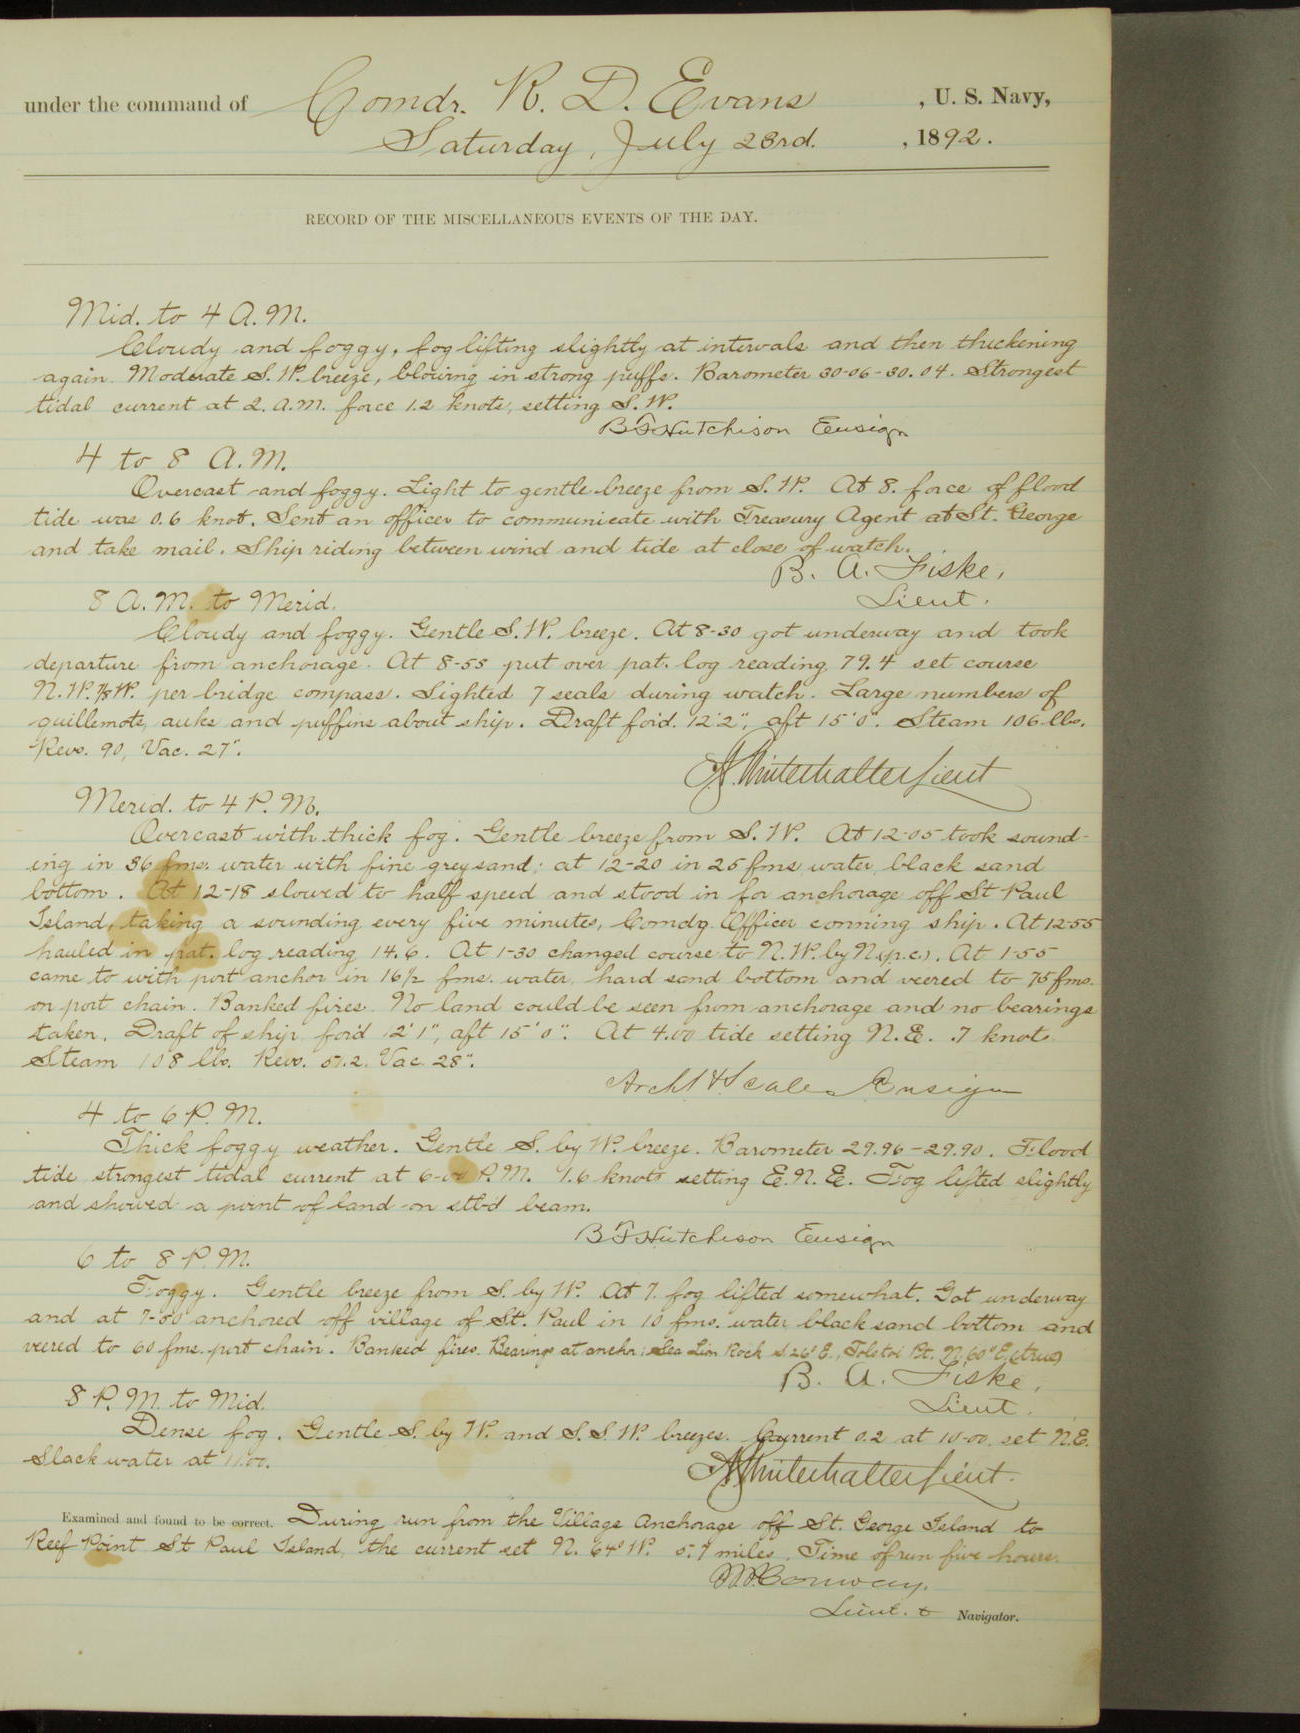 under the command of Comdr. R. D. Evans , U. S. Navy,
Saturday, July 23rd. , 1892.
RECORD OF THE MISCELLANEOUS EVENTS OF THE DAY.
Mid. to 4 A.M.
Cloudy and foggy, fog lifting slightly at intervals and then thickening
again. Moderate S.W. breeze, blowing in strong puffs. Barometer 30.06-30.04. Strongest
tidal current at 2. A.M. force 1.2 knots, setting S.W.
B F Hutchison Ensign
4 to 8 A.M.
Overcast and foggy. Light to gentle breeze from S.W. At 8. force of flood
tide was 0.6 knot. Sent an officer to communicate with Treasury Agent at St. George
and take mail. Ship riding between wind and tide at close of watch.
B. A. Fiske,
Lieut.
8 A.M. to Merid.
Cloudy and foggy. Gentle S.W. breeze. At 8-30 got underway and took
departure from anchorage. At 8-55 put over pat. log reading 79.4 set course
N.W. 7/8 W. per bridge compass. Sighted 7 seals during watch. Large numbers of
guillemots, auks and puffins about ship. Draft for'd. 12'2", aft 15'0". Steam 106 lbs.
Revs. 90, Vac. 27".
Winterhalter Lieut
Merid. to 4 P.M.
Overcast with thick fog. Gentle breeze from S.W. At 12-05 took sound-
ing in 36 fms. water with fine grey sand; at 12-20 in 25 fms water, black sand
bottom. At 12-18 slowed to half speed and stood in for anchorage off St Paul
Island, taking a sounding every five minutes, Comdg. Officer conning ship. At 12-55
hauled in pat. log reading 14.6. At 1-30 changed course to N.W. by N (p.c.). At 1-55
came to with port anchor in 16 1/2 fms. water, hard sand bottom and veered to 75 fms.
on port chain. Banked fires. No land could be seen from anchorage and no bearings
taken. Draft of ship for'd 12'1", aft 15'0". At 4.00 tide setting N.E. .7 knots
Steam 108 lbs. Revs. 57.2. Vac. 28".
Arch'd H Scales Ensign
4 to 6 P.M.
Thick foggy weather. Gentle S. by W. breeze. Barometer 29.96-29.90. Flood
tide strongest tidal current at 6-00 P.M. 1.6 knots setting E.N.E. Fog lifted slightly
and showed a point of land on stb'd beam.
B F Hutchison Ensign
6 to 8 P.M.
Foggy. Gentle breeze from S. by W. At 7. fog lifted somewhat. Got underway
and at anchored off village of St. Paul in 10 fms. water black sand bottom and
veered to 60 fms. port chain. Banked fires. Bearings at anchor: Sea Lion Rock S 26° E., Tolstoi Pt. N. 60° E. (true)
B. A. Fiske,
Lieut.
8 P.M. to Mid.
Dense fog. Gentle S. by W. and S.S.W. breezes. Current 0.2 at 10-00, set N.E.
Slack water at 11.00.
Winterhalter Lieut.
Examined and found to be correct. During run from the Village Anchorage off St. George Island to
Reef Point St Paul Island, the current set N. 64° W. 5.7 miles. Time of run five hours.
Conway.
Lieut. & Navigator.